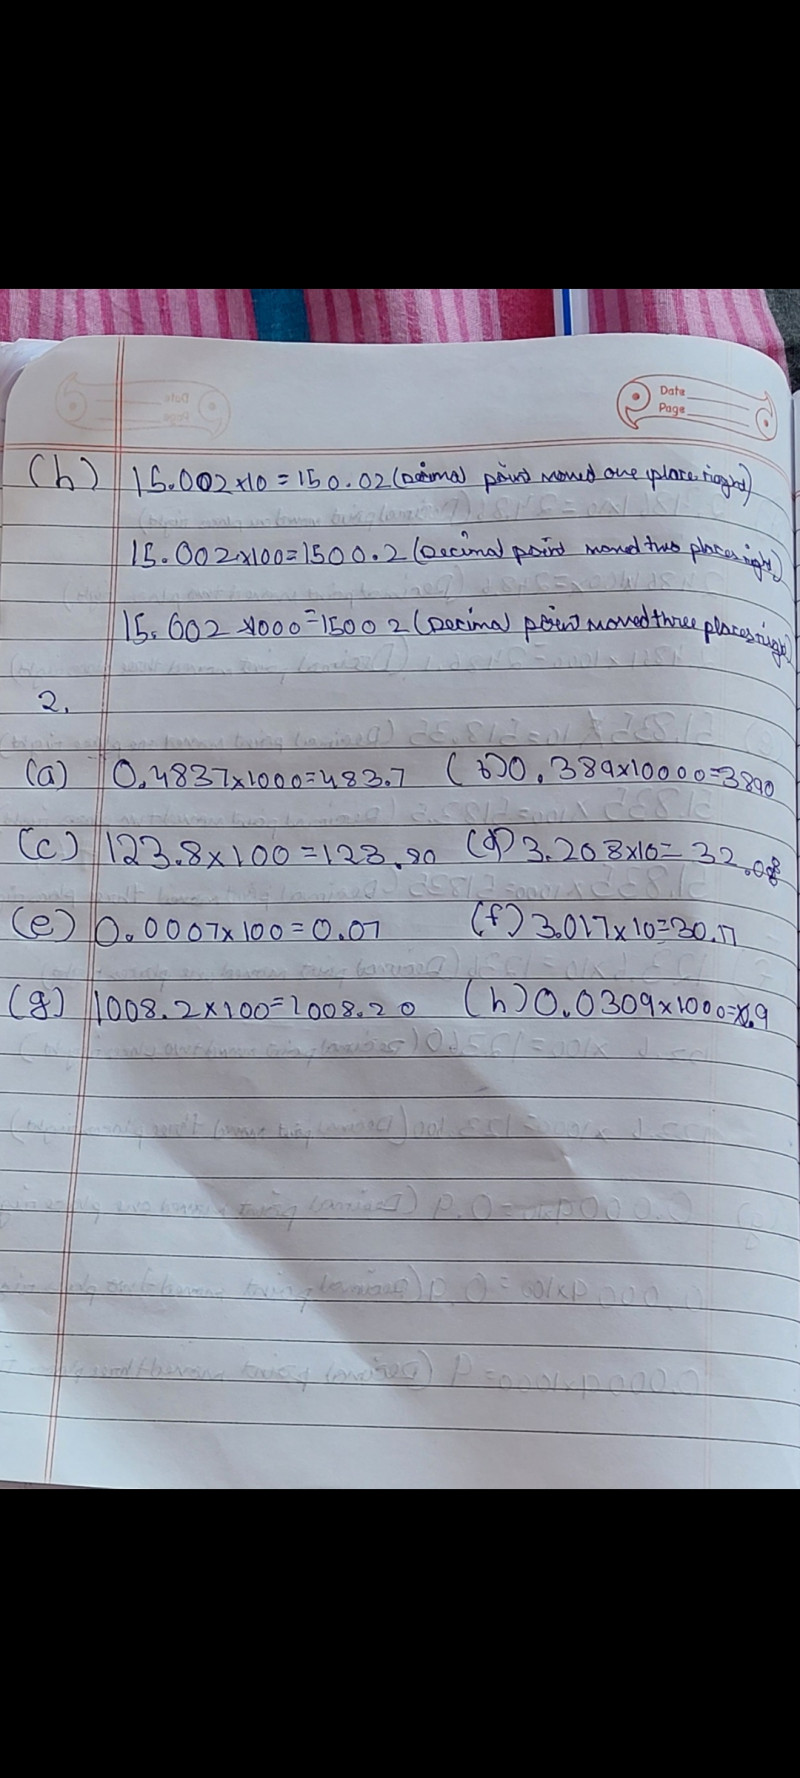 Date
Page
(h) 15.002×10=150.02 (Decimal point moved one place right)
15.002×100=1500.2 (Decimal point moved two places right)
15.002×1000=15002 (Decimal point moved three places right)
2.
(a) 0.4837×1000=483.7 (b) 0.389×10000=3890
(c) 123.8×100=123.80 (d) 3.208×10=32.08
(e) 0.0007×100=0.07 (f) 3.017×10=30.17
(g) 1008.2×100=1008.20 (h) 0.0309×1000=